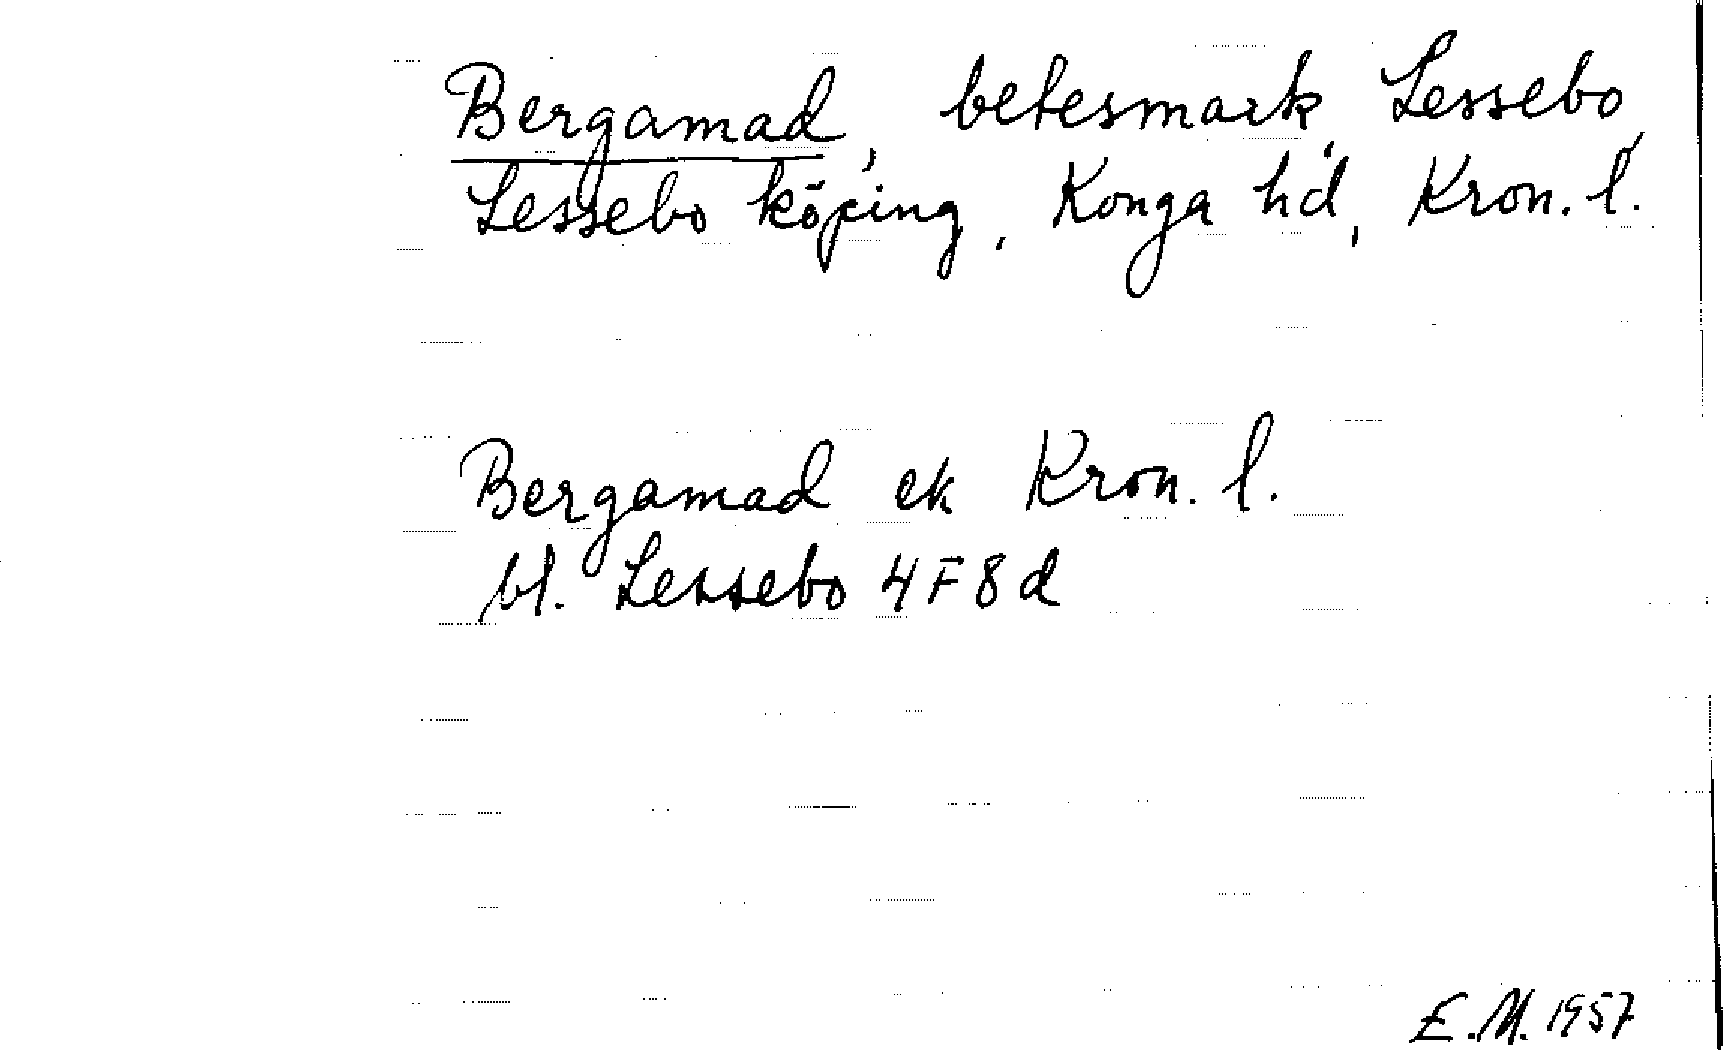 Bergamad, betesmark, Lessebo,
Lessebo köping, Konga hd, Kron. l.
Bergamad ek Kron. l.
bl. Lessebo 4F8d
E.M. 1957